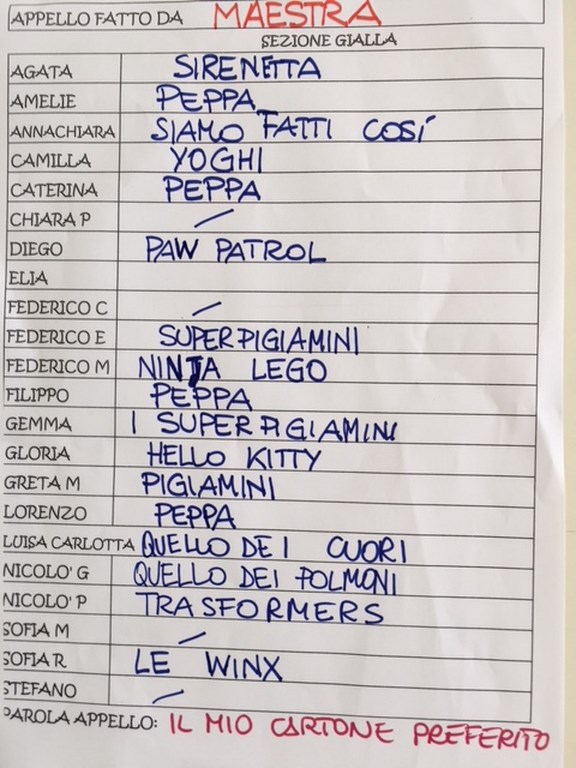 APPELLO FATTO DA MAESTRA
SEZIONE GIALLA
AGATA SIRENETTA
AMELIE PEPPA
ANNACHIARA SIAMO FATTI COSÍ
CAMILLA YOGHI
CATERINA PEPPA
CHIARA P /
DIEGO PAW PATROL
ELIA
FEDERICO C /
FEDERICO E SUPERPIGIAMINI
FEDERICO M NINJA LEGO
FILIPPO PEPPA
GEMMA I SUPERPIGIAMINI
GLORIA HELLO KITTY
GRETA M PIGIAMINI
LORENZO PEPPA
LUISA CARLOTTA QUELLO DEI CUORI
NICOLO' G QUELLO DEI POLMONI
NICOLO' P TRASFORMERS
SOFIA M /
SOFIA R LE WINX
STEFANO /
PAROLA APPELLO: IL MIO CARTONE PREFERITO